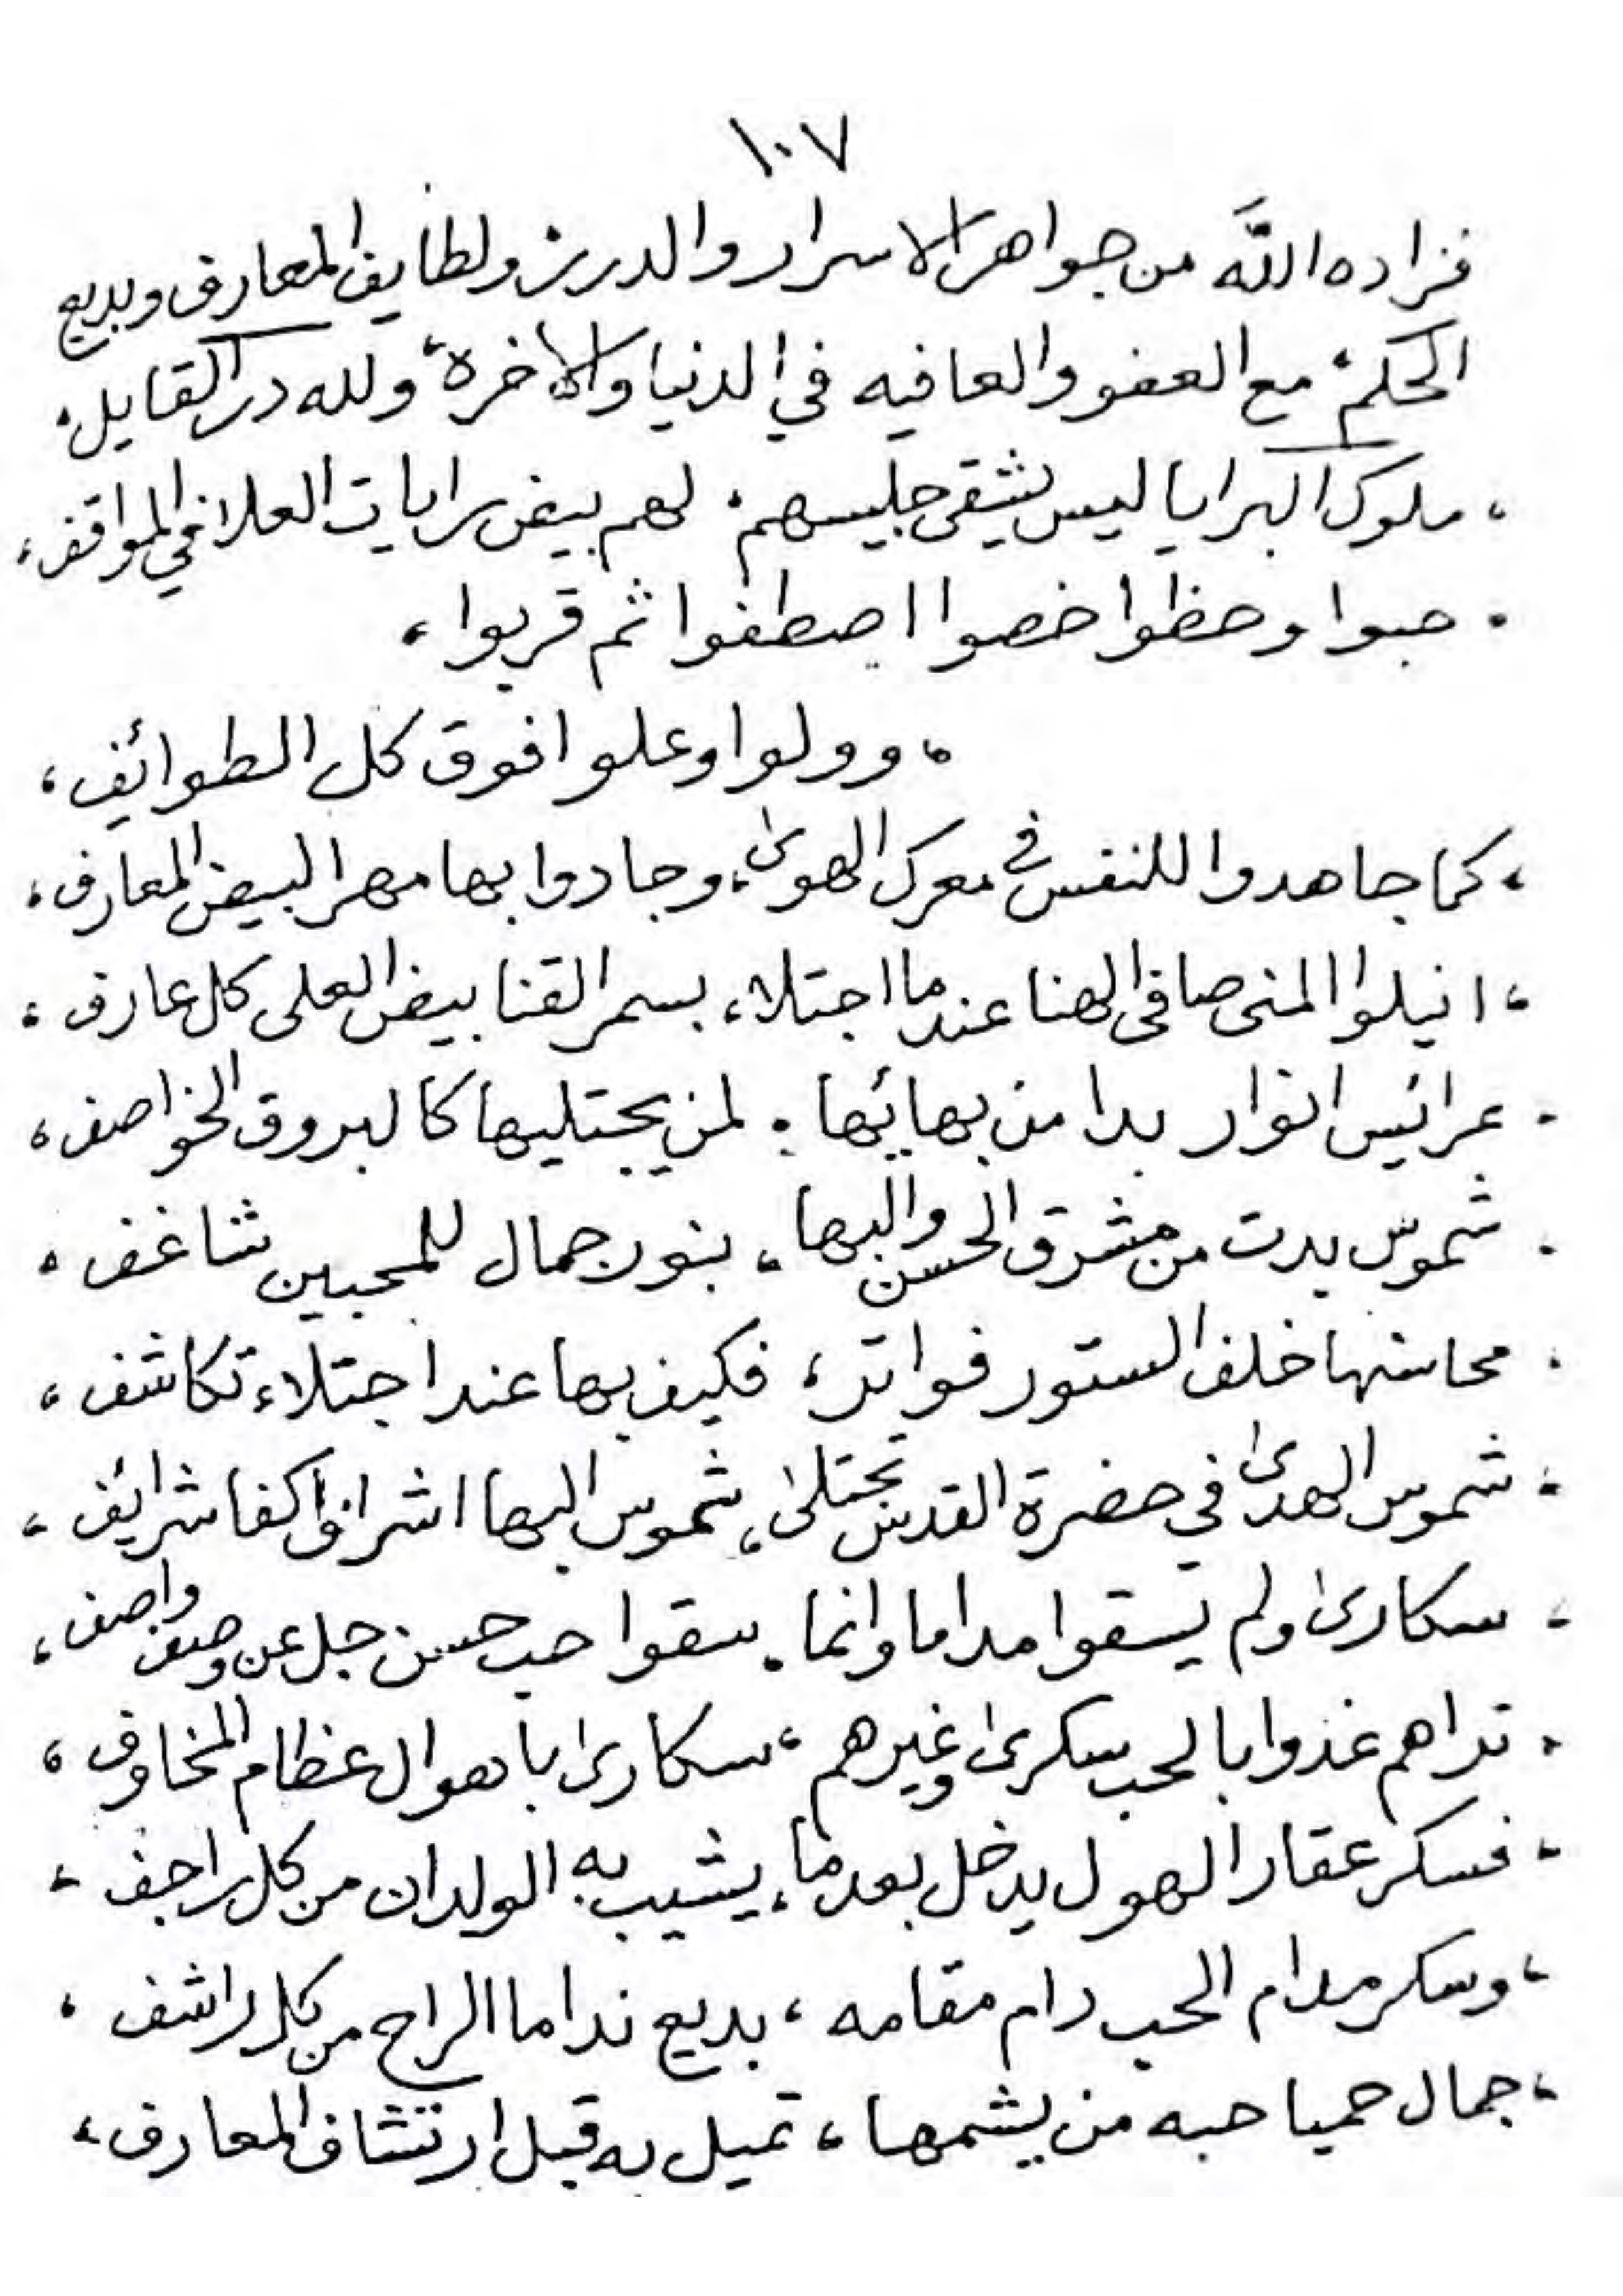 ١٠٧
فزاده الله من جواهر الاسرار والدرر ولطايف المعارف وبديع
الحكم، مع العفو والعافيه في الدنيا والاخرة، ولله در القايل.
، ملوك البرايا ليس يشقى جليسهم. لهم بيض رايات العلا في المواقف،
. حبوا وحظوا خصوا اصطفوا ثم قربوا،
، وولوا وعلوا فوق كل الطوائف،
، كما جاهدوا للنفس في معرك الهوى، وجادوا بها مهرا لبيض المعارف،
، انيلوا المنى صافى الهنا عندما اجتلا، بسمر القنا بيض العلى كل عارف،
. عرائيس انوار بدا من بهائها. لمن يجتليها كالبروق الخواصف،
. شموس بدت من مشرق الحسن والبها، بنور جمال للمحبين شاغف.
. محاسنها خلف الستور فواتر، فكيف بها عند اجتلاء تكاشف،
. شموس الهدى في حضرة القدس تجتلى، شموس البها اشراق اكفا شرائف،
. سكارى ولم يسقوا مداما وانما. سقوا حب حسن جل عن وصف واصف،
. تراهم غذوا بالحب سكرى وغيرهم، سكارى باهوال عظام المخاوف،
، فسكر عقار الهول يدخل بعدما، يشيب به الولدان من كل راجف،
، وسكر مدام الحب دام مقامه، بديع نداما الراح من كل راشف،
، جمال حميا حبه من يشمها، تميل به قبل ارتشاف المعارف،